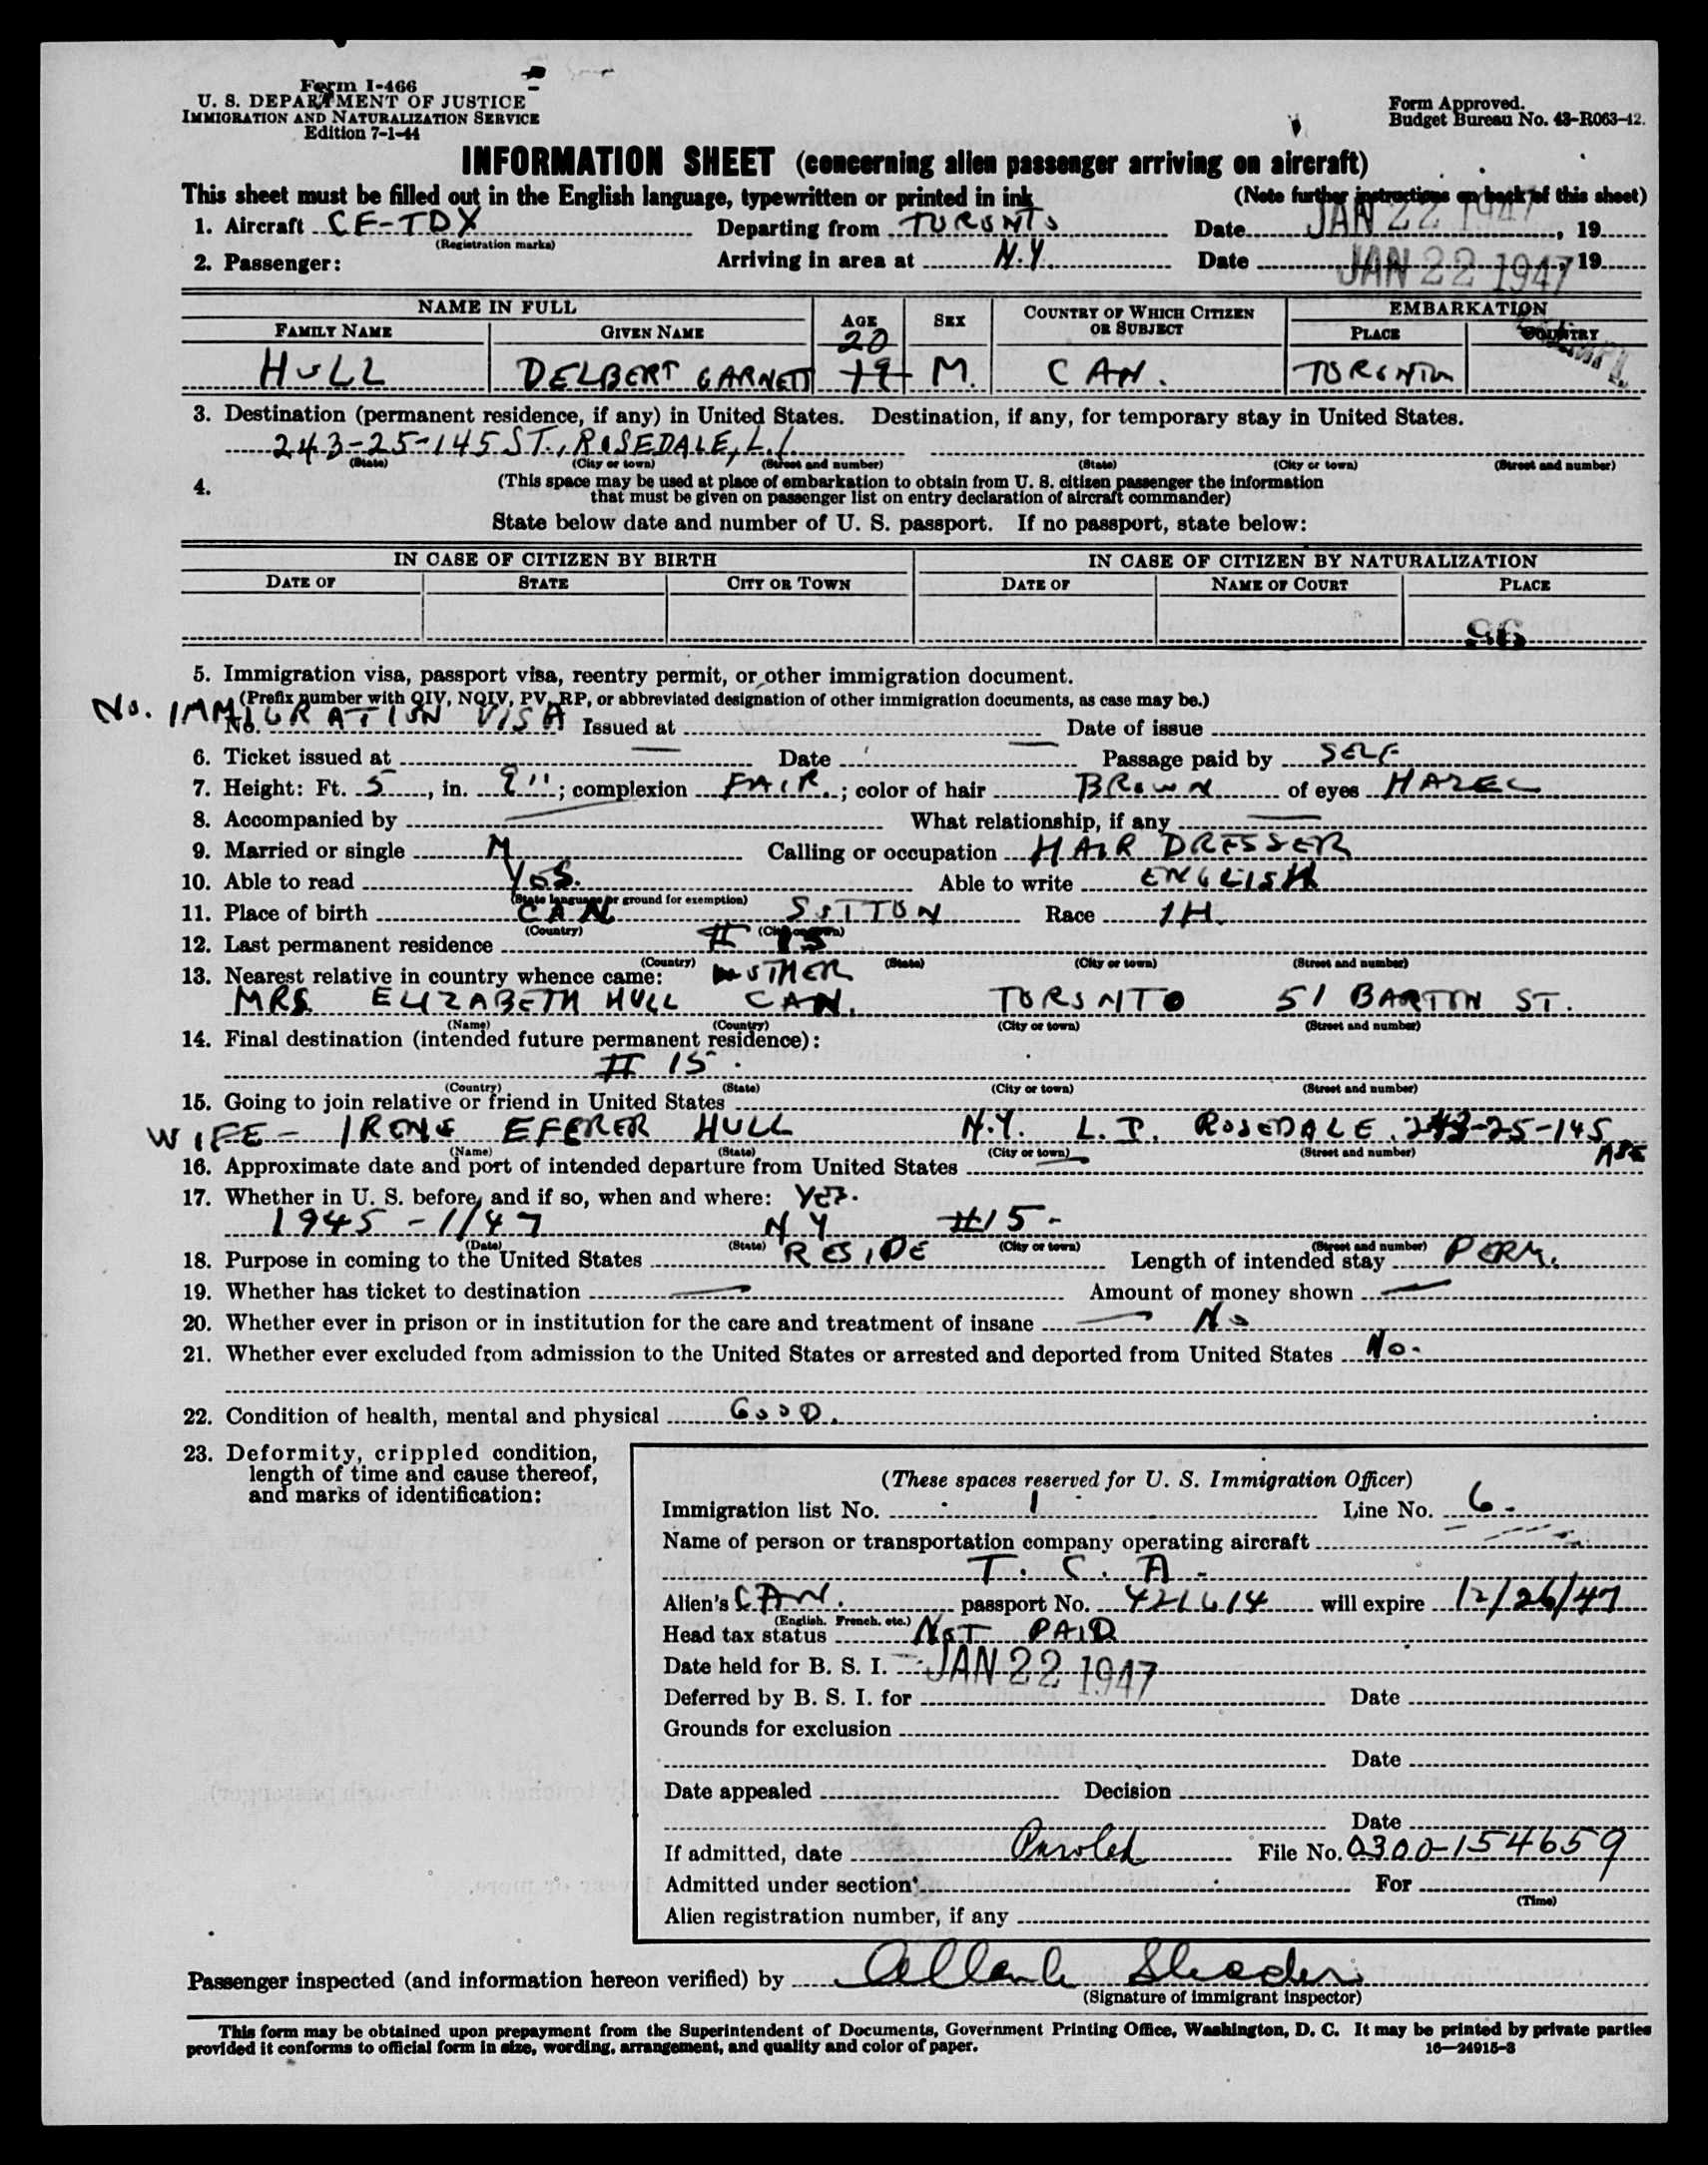 Form I-466
U. S. DEPARTMENT OF JUSTICE
IMMIGRATION AND NATURALIZATION SERVICE
Edition 7-1-44
Form Approved.
Budget Bureau No. 43-R063-42.
INFORMATION SHEET (concerning alien passenger arriving on aircraft)
This sheet must be filled out in the English language, typewritten or printed in ink (Note further instructions on back of this sheet)
1. Aircraft CF-TDX Departing from TORONTO Date JAN 22 1947, 19
(Registration marks)
2. Passenger: Arriving in area at N.Y. Date JAN 22 1947, 19
NAME IN FULL AGE SEX COUNTRY OF WHICH CITIZEN OR SUBJECT EMBARKATION
FAMILY NAME GIVEN NAME PLACE COUNTRY
20
HULL DELBERT GARNETT 19 M. CAN. TORONTO
3. Destination (permanent residence, if any) in United States. Destination, if any, for temporary stay in United States.
243-25-145 ST., ROSEDALE, L.I.
(State) (City or town) (Street and number) (State) (City or town) (Street and number)
4. (This space may be used at place of embarkation to obtain from U. S. citizen passenger the information
that must be given on passenger list on entry declaration of aircraft commander)
State below date and number of U. S. passport. If no passport, state below:
IN CASE OF CITIZEN BY BIRTH IN CASE OF CITIZEN BY NATURALIZATION
DATE OF STATE CITY OR TOWN DATE OF NAME OF COURT PLACE
5. Immigration visa, passport visa, reentry permit, or other immigration document.
(Prefix number with QIV, NQIV, PV, RP, or abbreviated designation of other immigration documents, as case may be.)
No. IMMIGRATION VISA
No. Issued at Date of issue
6. Ticket issued at — Date — Passage paid by SELF
7. Height: Ft. 5, in. 9"; complexion FAIR.; color of hair BROWN of eyes HAZEL
8. Accompanied by — What relationship, if any —
9. Married or single M Calling or occupation HAIR DRESSER
10. Able to read YES. Able to write ENGLISH
(State language or ground for exemption)
11. Place of birth CAN SUTTON Race
(Country) (City or town)
12. Last permanent residence # 15
(Country) (State) (City or town) (Street and number)
13. Nearest relative in country whence came: MOTHER
MRS. ELIZABETH HULL CAN. TORONTO 51 BARTON ST.
(Name) (Country) (City or town) (Street and number)
14. Final destination (intended future permanent residence):
# 15.
(Country) (State) (City or town) (Street and number)
15. Going to join relative or friend in United States
WIFE - IRENE EFERER HULL N.Y. L.I. ROSEDALE. 243-25-145
(Name) (State) (City or town) (Street and number)
16. Approximate date and port of intended departure from United States —
17. Whether in U. S. before, and if so, when and where: YES.
1945 - 1/47 NY #15 -
(Date) (State) (City or town) (Street and number)
18. Purpose in coming to the United States RESIDE Length of intended stay PERM.
19. Whether has ticket to destination — Amount of money shown —
20. Whether ever in prison or in institution for the care and treatment of insane — No
21. Whether ever excluded from admission to the United States or arrested and deported from United States No.
22. Condition of health, mental and physical GOOD.
23. Deformity, crippled condition,
length of time and cause thereof,
and marks of identification:
(These spaces reserved for U. S. Immigration Officer)
Immigration list No. 1 Line No. 6 -
Name of person or transportation company operating aircraft
T. C. A. -
Alien's CAN. passport No. 421614 will expire 12/26/47
(English, French, etc.)
Head tax status NOT PAID
Date held for B. S. I. JAN 22 1947
Deferred by B. S. I. for Date
Grounds for exclusion
Date
Date appealed Decision
Date
If admitted, date Paroled File No. 0300-154659
Admitted under section For
(Time)
Alien registration number, if any
Passenger inspected (and information hereon verified) by
(Signature of immigrant inspector)
This form may be obtained upon prepayment from the Superintendent of Documents, Government Printing Office, Washington, D. C. It may be printed by private parties
provided it conforms to official form in size, wording, arrangement, and quality and color of paper. 16—24915-3